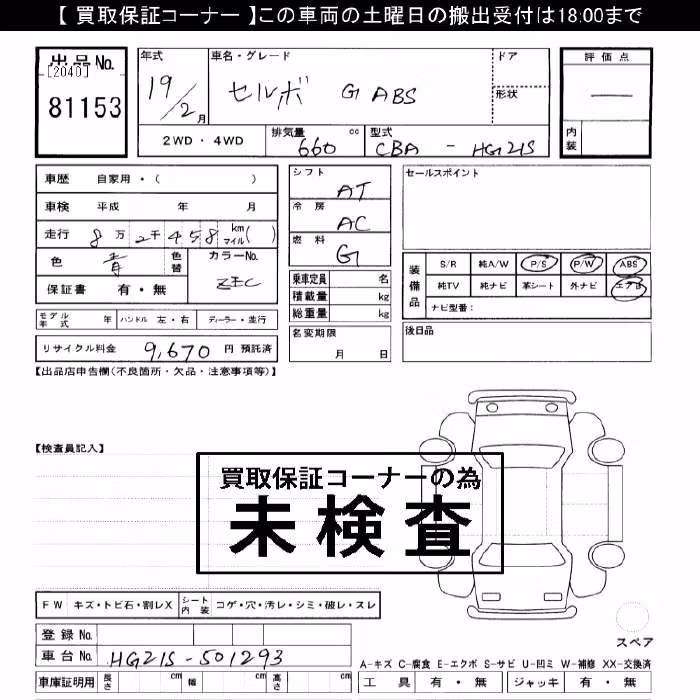 【 買取保証コーナー 】この車両の土曜日の搬出受付は18:00まで
出品No.
[2040]
81153
年式
19/2月
車名・グレード
セルボ G ABS
ドア
形状
評価点
—
内装
2WD・4WD
排気量 660 cc
型式 CBA - HG21S
車歴 自家用・( )
車検 平成 年 月
走行 8万2千458 km マイル( )
色 青 色替
カラーNo. ZEC
保証書 有・無
シフト AT
冷房 AC
燃料 G
乗車定員 名
積載量 kg
総重量 kg
名変期限
月 日
セールスポイント
装備品
S/R 純A/W P/S P/W ABS
純TV 純ナビ 革シート 外ナビ エアB
ナビ型番:
後日品
モデル年式 年 ハンドル 左・右 ディーラー・並行
リサイクル料金 9,670 円 預託済
【出品店申告欄(不良箇所・欠品・注意事項等)】
【検査員記入】
買取保証コーナーの為
未検査
FW キズ・トビ石・割レX シート内装 コゲ・穴・汚レ・シミ・破レ・スレ
スペア
登録No.
車台No. HG21S-501293
A-キズ C-腐食 E-エクボ S-サビ U-凹ミ W-補修 XX-交換済
車庫証明用 長さ cm 幅 cm 高さ cm
工具 有・無 ジャッキ 有・無